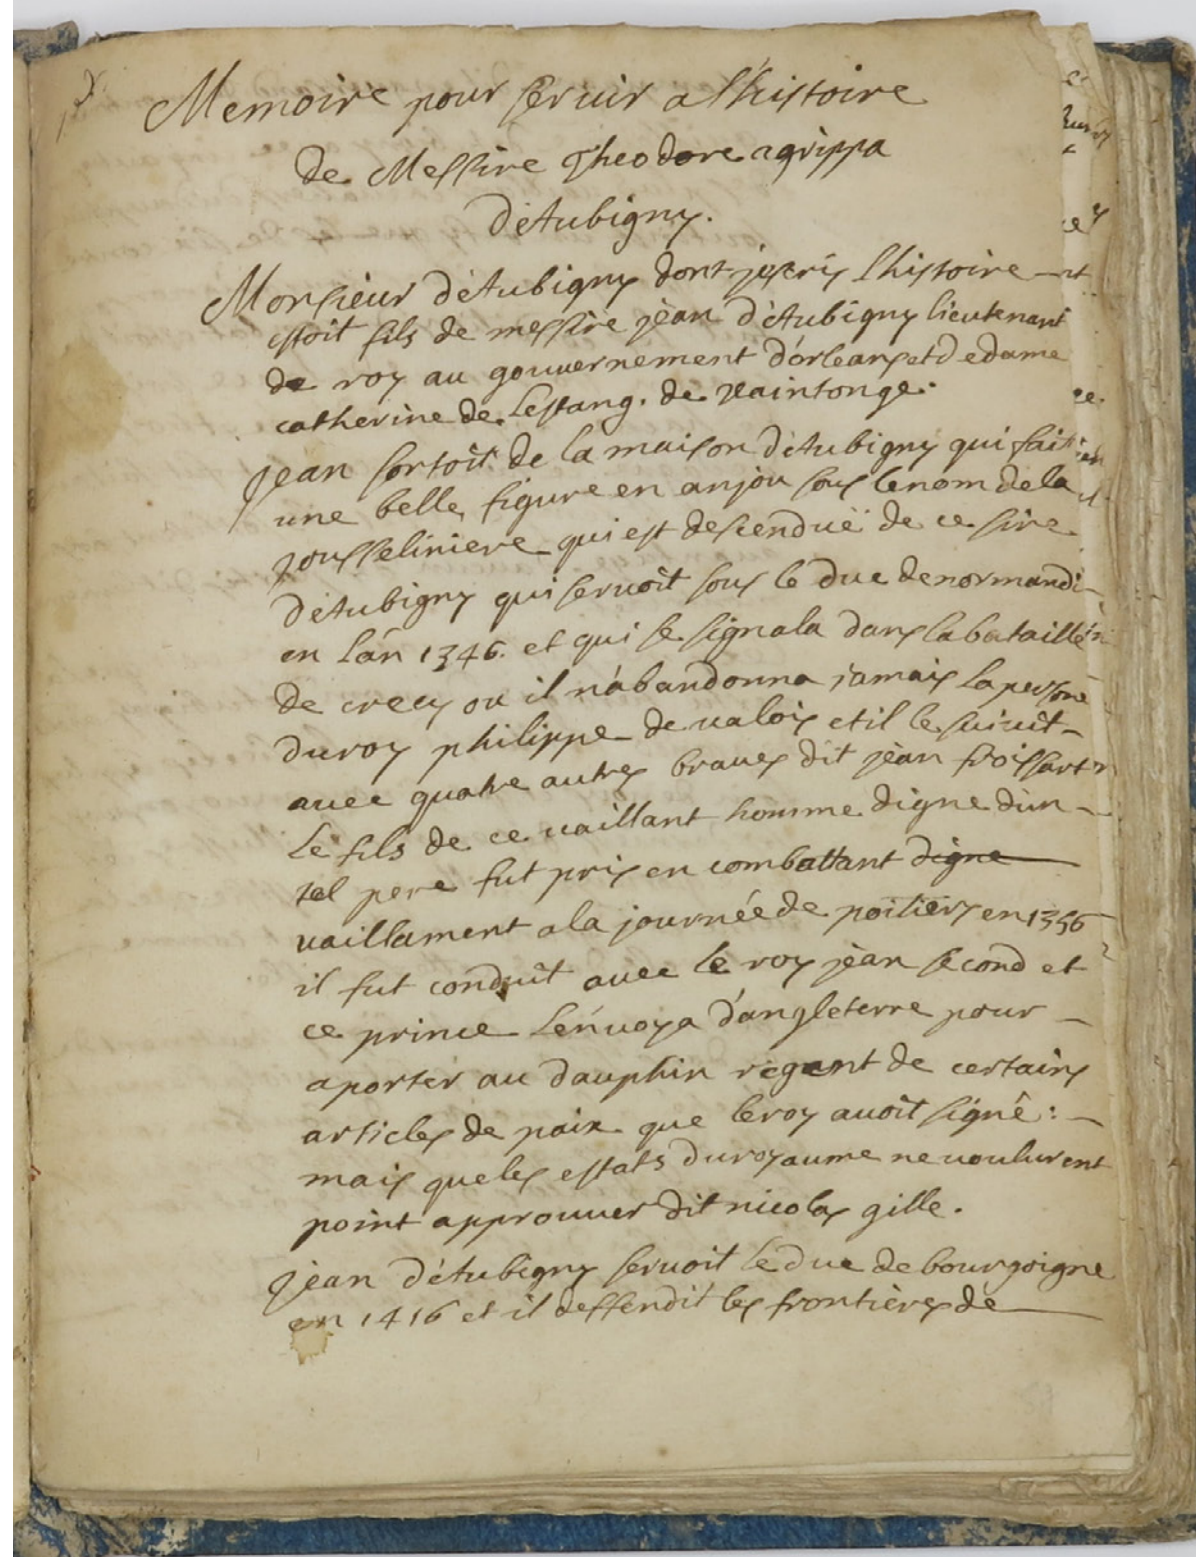 Memoire pour servir a l'histoire
de Messire Theodore agrippa
d'Aubigny.
Monsieur d'Aubigny dont jescris l'histoire
estoit fils de messire jean d'Aubigny lieutenant
de roy au gouvernement d'orleans et de dame
catherine de Lestang. de xaintonge.
Jean sortoit de la maison d'Aubigny qui fait
une belle figure en anjou sous le nom de la
jousseliniere qui est descenduë de ce sire
d'Aubigny qui servoit sous le duc de normandi-
en l'an 1346. et qui se signala dans la bataille
de crecy ou il n'abandonna jamais la persone
du roy philippe de valois et il le suivit -
avec quatre autres braves dit jean froissart
le fils de ce vaillant homme digne d'un -
tel pere fut pris en combattant digne
vaillament a la journée de poitiers en 1356
il fut conduit avec le roy jean second et
ce prince l'envoya d'angleterre pour -
aporter au dauphin regent de certains
articles de paix que le roy avoit signé : -
mais que les estats du royaume ne voulurent
point approuver dit nicolas gille.
Jean d'Aubigny servoit le duc de bourgoigne
en 1416 et il deffendit les frontieres de